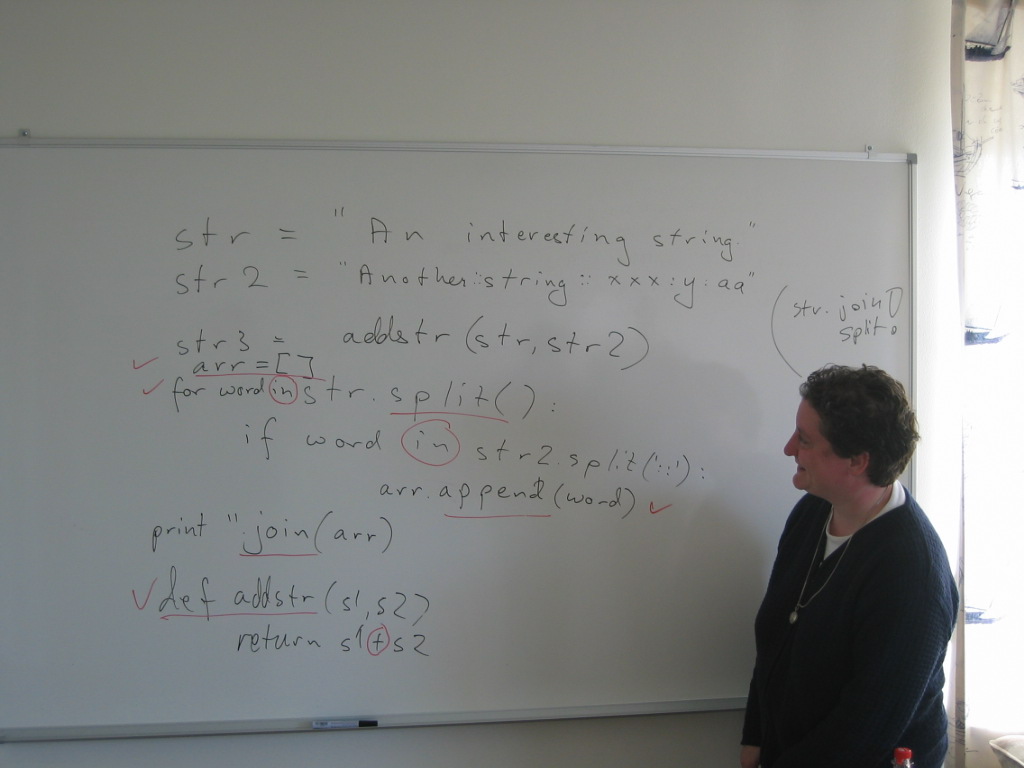 str = "An interesting string."
str2 = "Another::string::xxx:y:aa"
(str.join()
split()
str3 = addstr(str, str2)
arr = []
for word in str.split():
if word in str2.split('::'):
arr.append(word)
print ''.join(arr)
def addstr(s1, s2)
return s1+s2